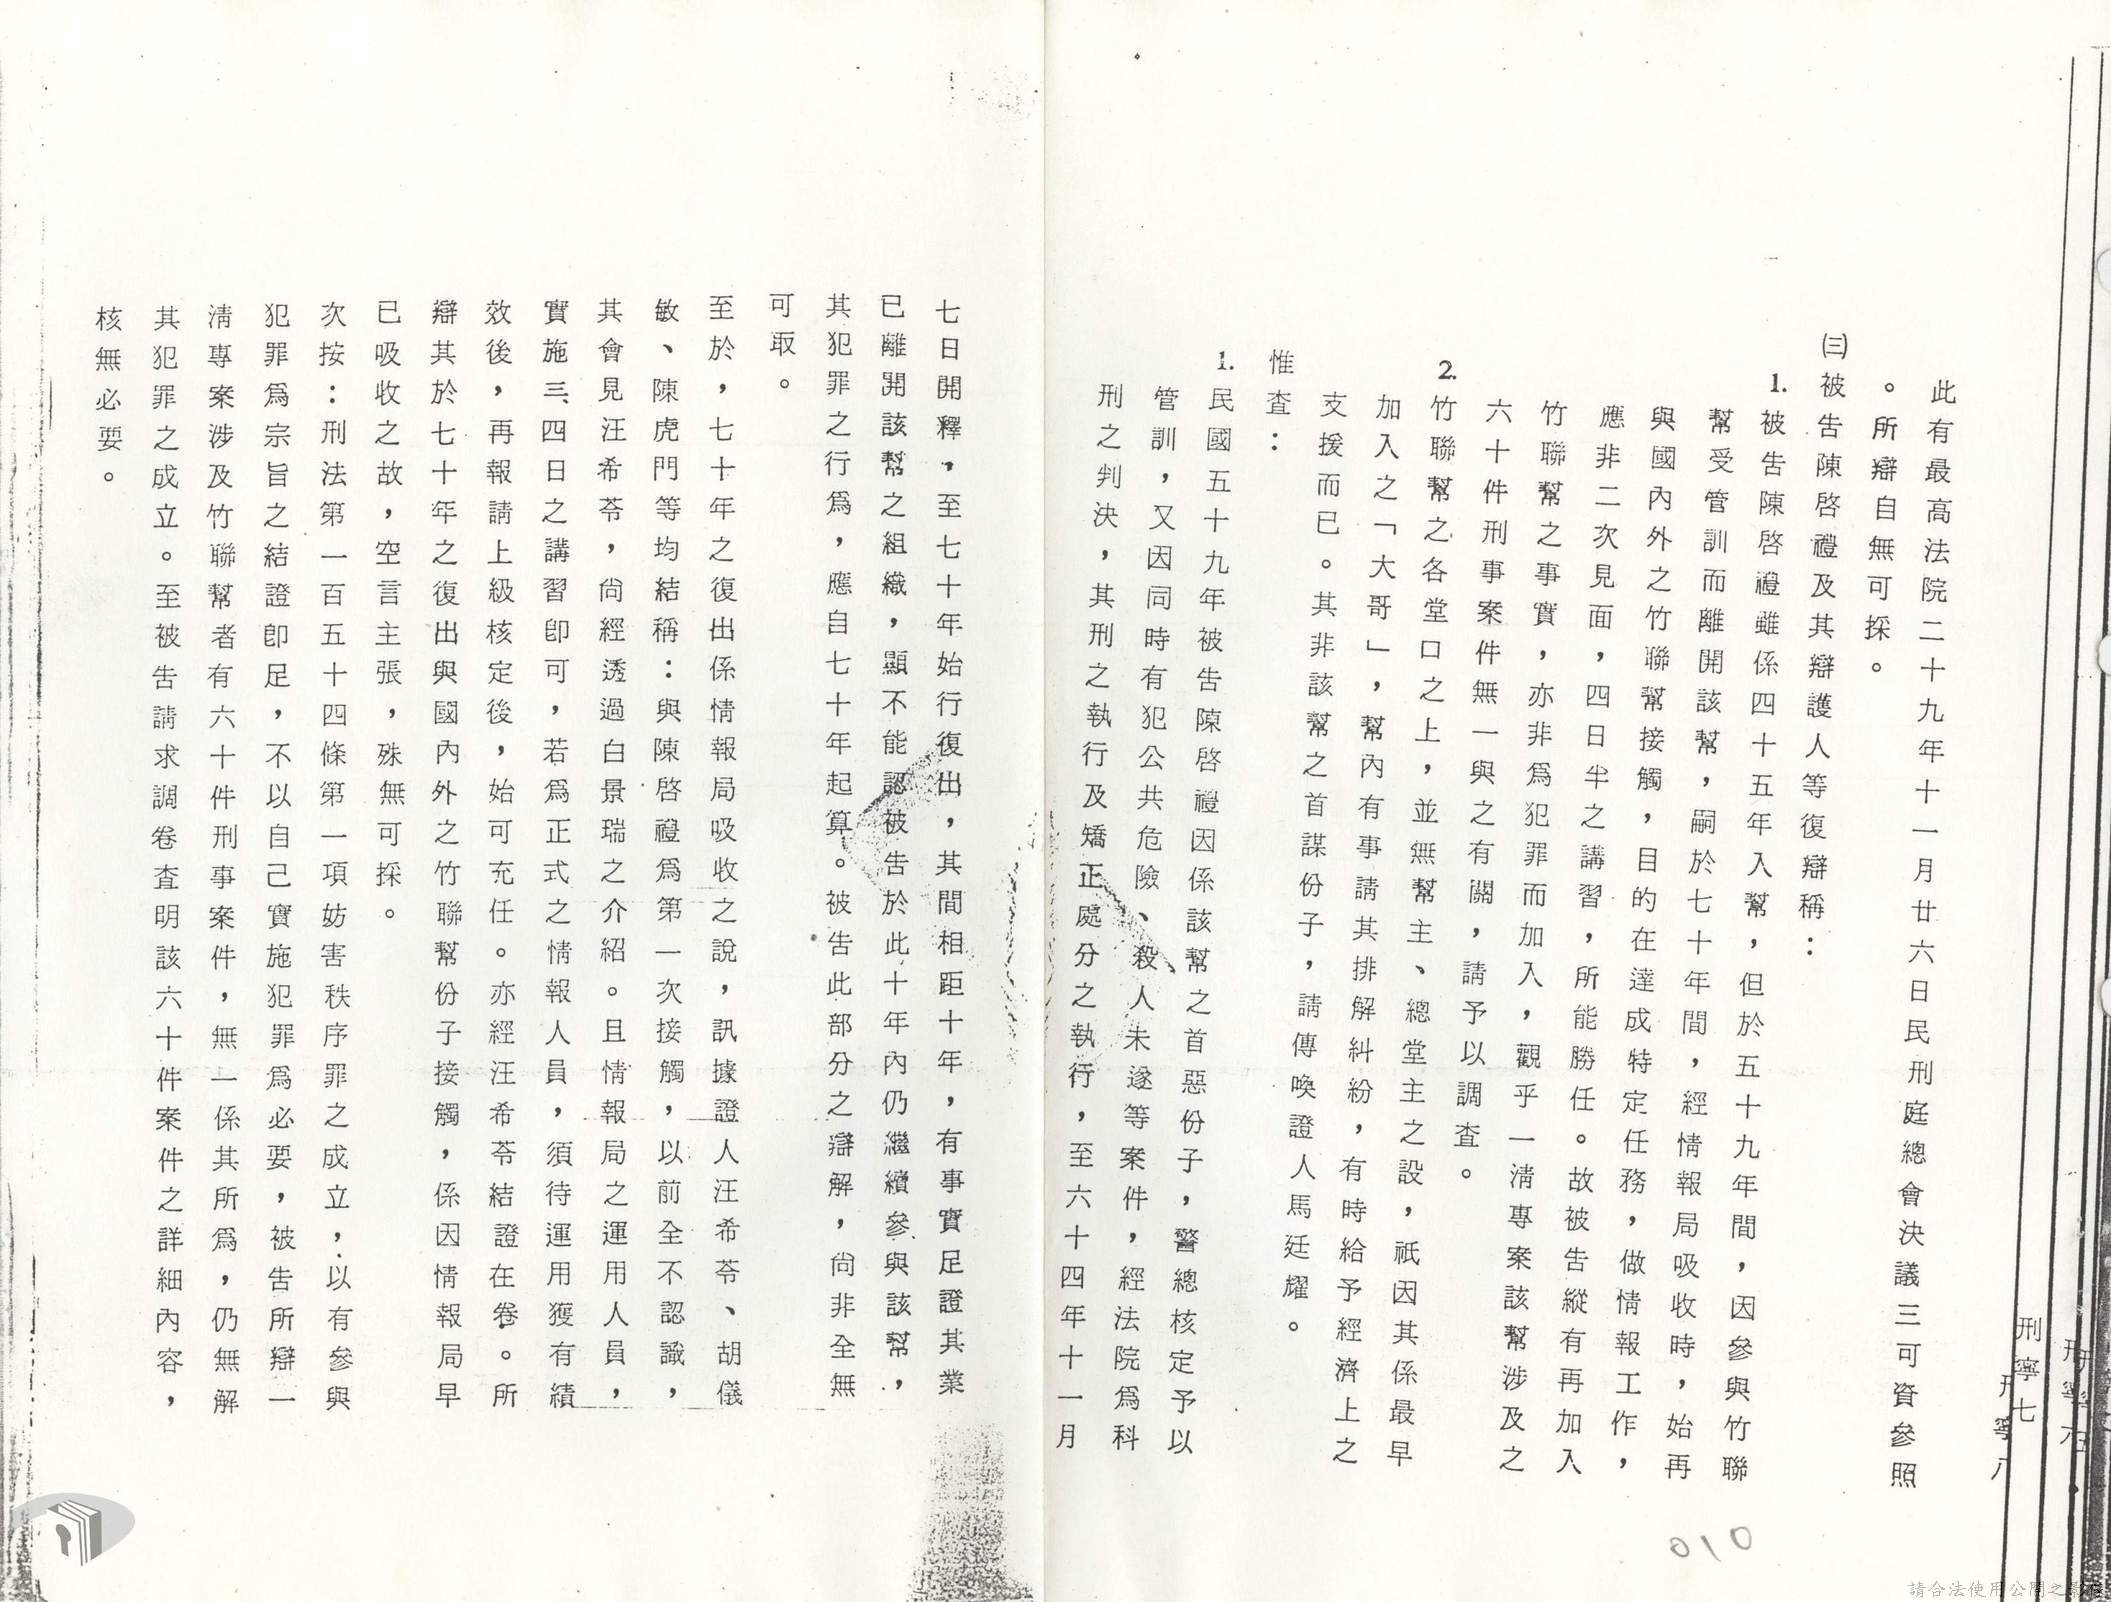 此有最高法院二十九年十一月廿六日民刑庭總會決議三可資參照
。所辯自無可採。
㈢被告陳啓禮及其辯護人等復辯稱：
1.被告陳啓禮雖係四十五年入幫，但於五十九年間，因參與竹聯
幫受管訓而離開該幫，嗣於七十年間，經情報局吸收時，始再
與國內外之竹聯幫接觸，目的在達成特定任務，做情報工作，
應非二次見面，四日半之講習，所能勝任。故被告縱有再加入
竹聯幫之事實，亦非爲犯罪而加入，觀乎一淸專案該幫涉及之
六十件刑事案件無一與之有關，請予以調查。
2.竹聯幫之各堂口之上，並無幫主、總堂主之設，祇因其係最早
加入之「大哥」，幫內有事請其排解糾紛，有時給予經濟上之
支援而已。其非該幫之首謀份子，請傳喚證人馬廷耀。
惟查：
1.民國五十九年被告陳啓禮因係該幫之首惡份子，警總核定予以
管訓，又因同時有犯公共危險、殺人未遂等案件，經法院爲科
刑之判決，其刑之執行及矯正處分之執行，至六十四年十一月
七日開釋，至七十年始行復出，其間相距十年，有事實足證其業
已離開該幫之組織，顯不能認被告於此十年內仍繼續參與該幫，
其犯罪之行爲，應自七十年起算。被告此部分之辯解，尙非全無
可取。
至於，七十年之復出係情報局吸收之說，訊據證人汪希苓、胡儀
敏、陳虎門等均結稱：與陳啓禮爲第一次接觸，以前全不認識，
其會見汪希苓，尙經透過白景瑞之介紹。且情報局之運用人員，
實施三、四日之講習卽可，若爲正式之情報人員，須待運用獲有績
效後，再報請上級核定後，始可充任。亦經汪希苓結證在卷。所
辯其於七十年之復出與國內外之竹聯幫份子接觸，係因情報局早
已吸收之故，空言主張，殊無可採。
次按：刑法第一百五十四條第一項妨害秩序罪之成立，以有參與
犯罪爲宗旨之結證卽足，不以自己實施犯罪爲必要，被告所辯一
淸專案涉及竹聯幫者有六十件刑事案件，無一係其所爲，仍無解
其犯罪之成立。至被告請求調卷查明該六十件案件之詳細內容，
核無必要。
刑寧七
刑寧六
刑寧八
010
請合法使用公開之影像